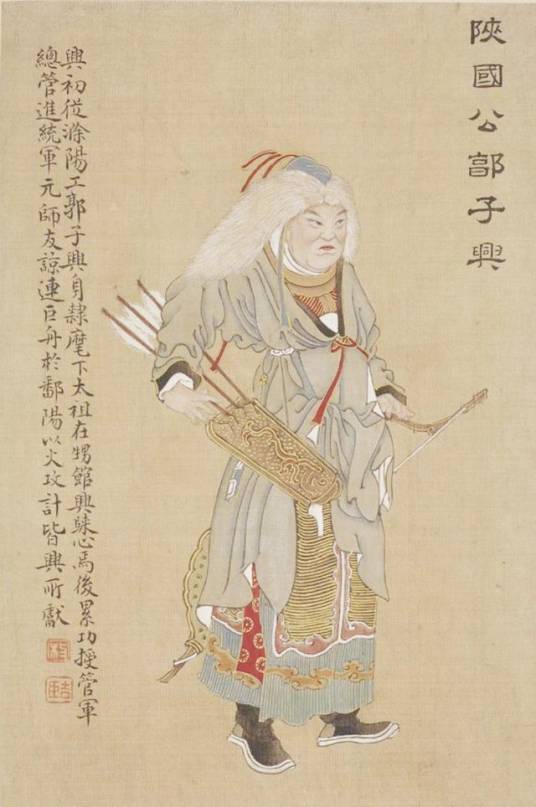 陝國公郭子興
興初從滁陽王郭子興身隸麾下太祖在甥館興歸心焉後累功授管軍
總管進統軍元師友諒連巨舟於鄱陽以火攻計皆興所獻